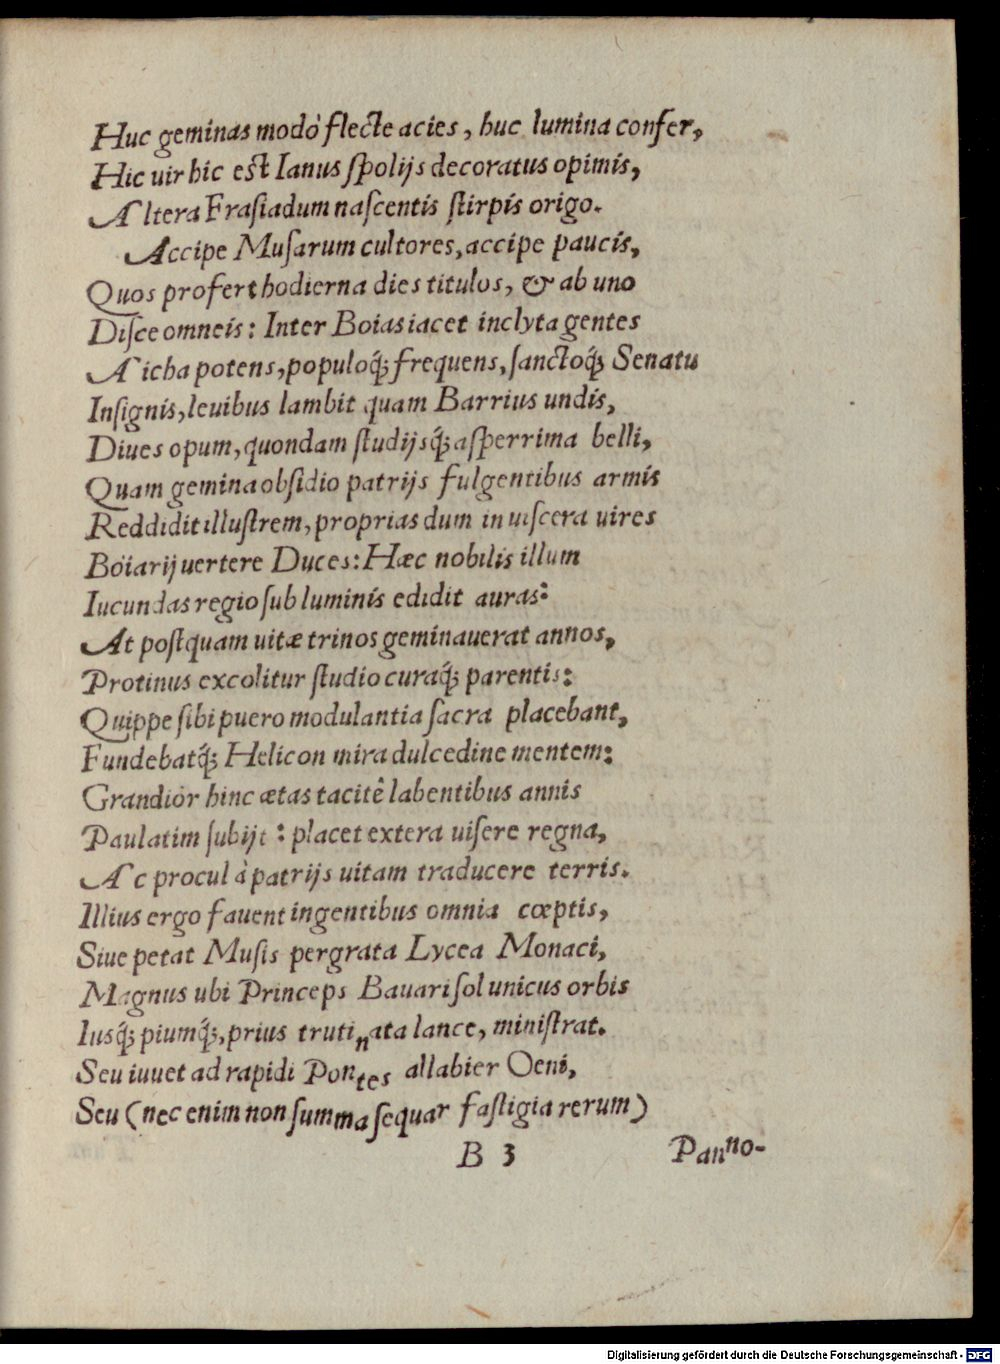 Huc geminas modò flecte acies, huc lumina confer,
Hic uir hic est Ianus ſpolijs decoratus opimis,
Altera Fraſiadum naſcentis ſtirpis origo.
Accipe Muſarum cultores, accipe paucis,
Quos profert hodierna dies titulos, & ab uno
Diſce omneis: Inter Boias iacet inclyta gentes
Aicha potens, populoq́; frequens, ſanctoq́; Senatu
Inſignis, leuibus lambit quam Barrius undis,
Diues opum, quondam ſtudijsq́; aſperrima belli,
Quam gemina obſidio patrijs fulgentibus armis
Reddidit illuſtrem, proprias dum in uiſcera uires
Boïarij uertere Duces: Hæc nobilis illum
Iucundas regio ſub luminis edidit auras:
At poſtquam uitæ trinos geminauerat annos,
Protinus excolitur ſtudio curaq́; parentis:
Quippe ſibi puero modulantia ſacra placebant,
Fundebatq́; Helicon mira dulcedine mentem:
Grandior hinc ætas tacitê labentibus annis
Paulatim ſubijt: placet extera uiſere regna,
Ac procul à patrijs uitam traducere terris.
Illius ergo fauent ingentibus omnia cœptis,
Siue petat Muſis pergrata Lycea Monaci,
Magnus ubi Princeps Bauari ſol unicus orbis
Iusq́; piumq́;, prius trutinata lance, miniſtrat.
Seu iuuet ad rapidi Pontes allabier Oeni,
Seu (nec enim non ſumma ſequar faſtigia rerum)
B 3 Panno-
Digitalisierung gefördert durch die Deutsche Forschungsgemeinschaft - DFG